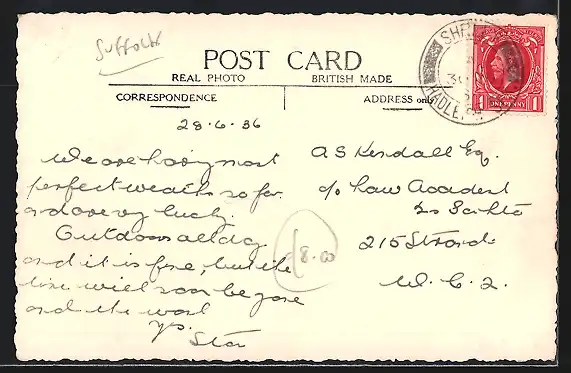 Suffolk
POST CARD
REAL PHOTO BRITISH MADE
CORRESPONDENCE
ADDRESS only
SHE
HADLE
1 ONE PENNY 1
28-6-36
We are having most
perfect weather so far
and are very lucky.
Outdoors all day
and it is fine, but the
time will soon be gone
and the
yrs.
Star
A S Kendall Esq.
c/o Law Accident
Ins
215 Strand
W. C. 2.
8-00